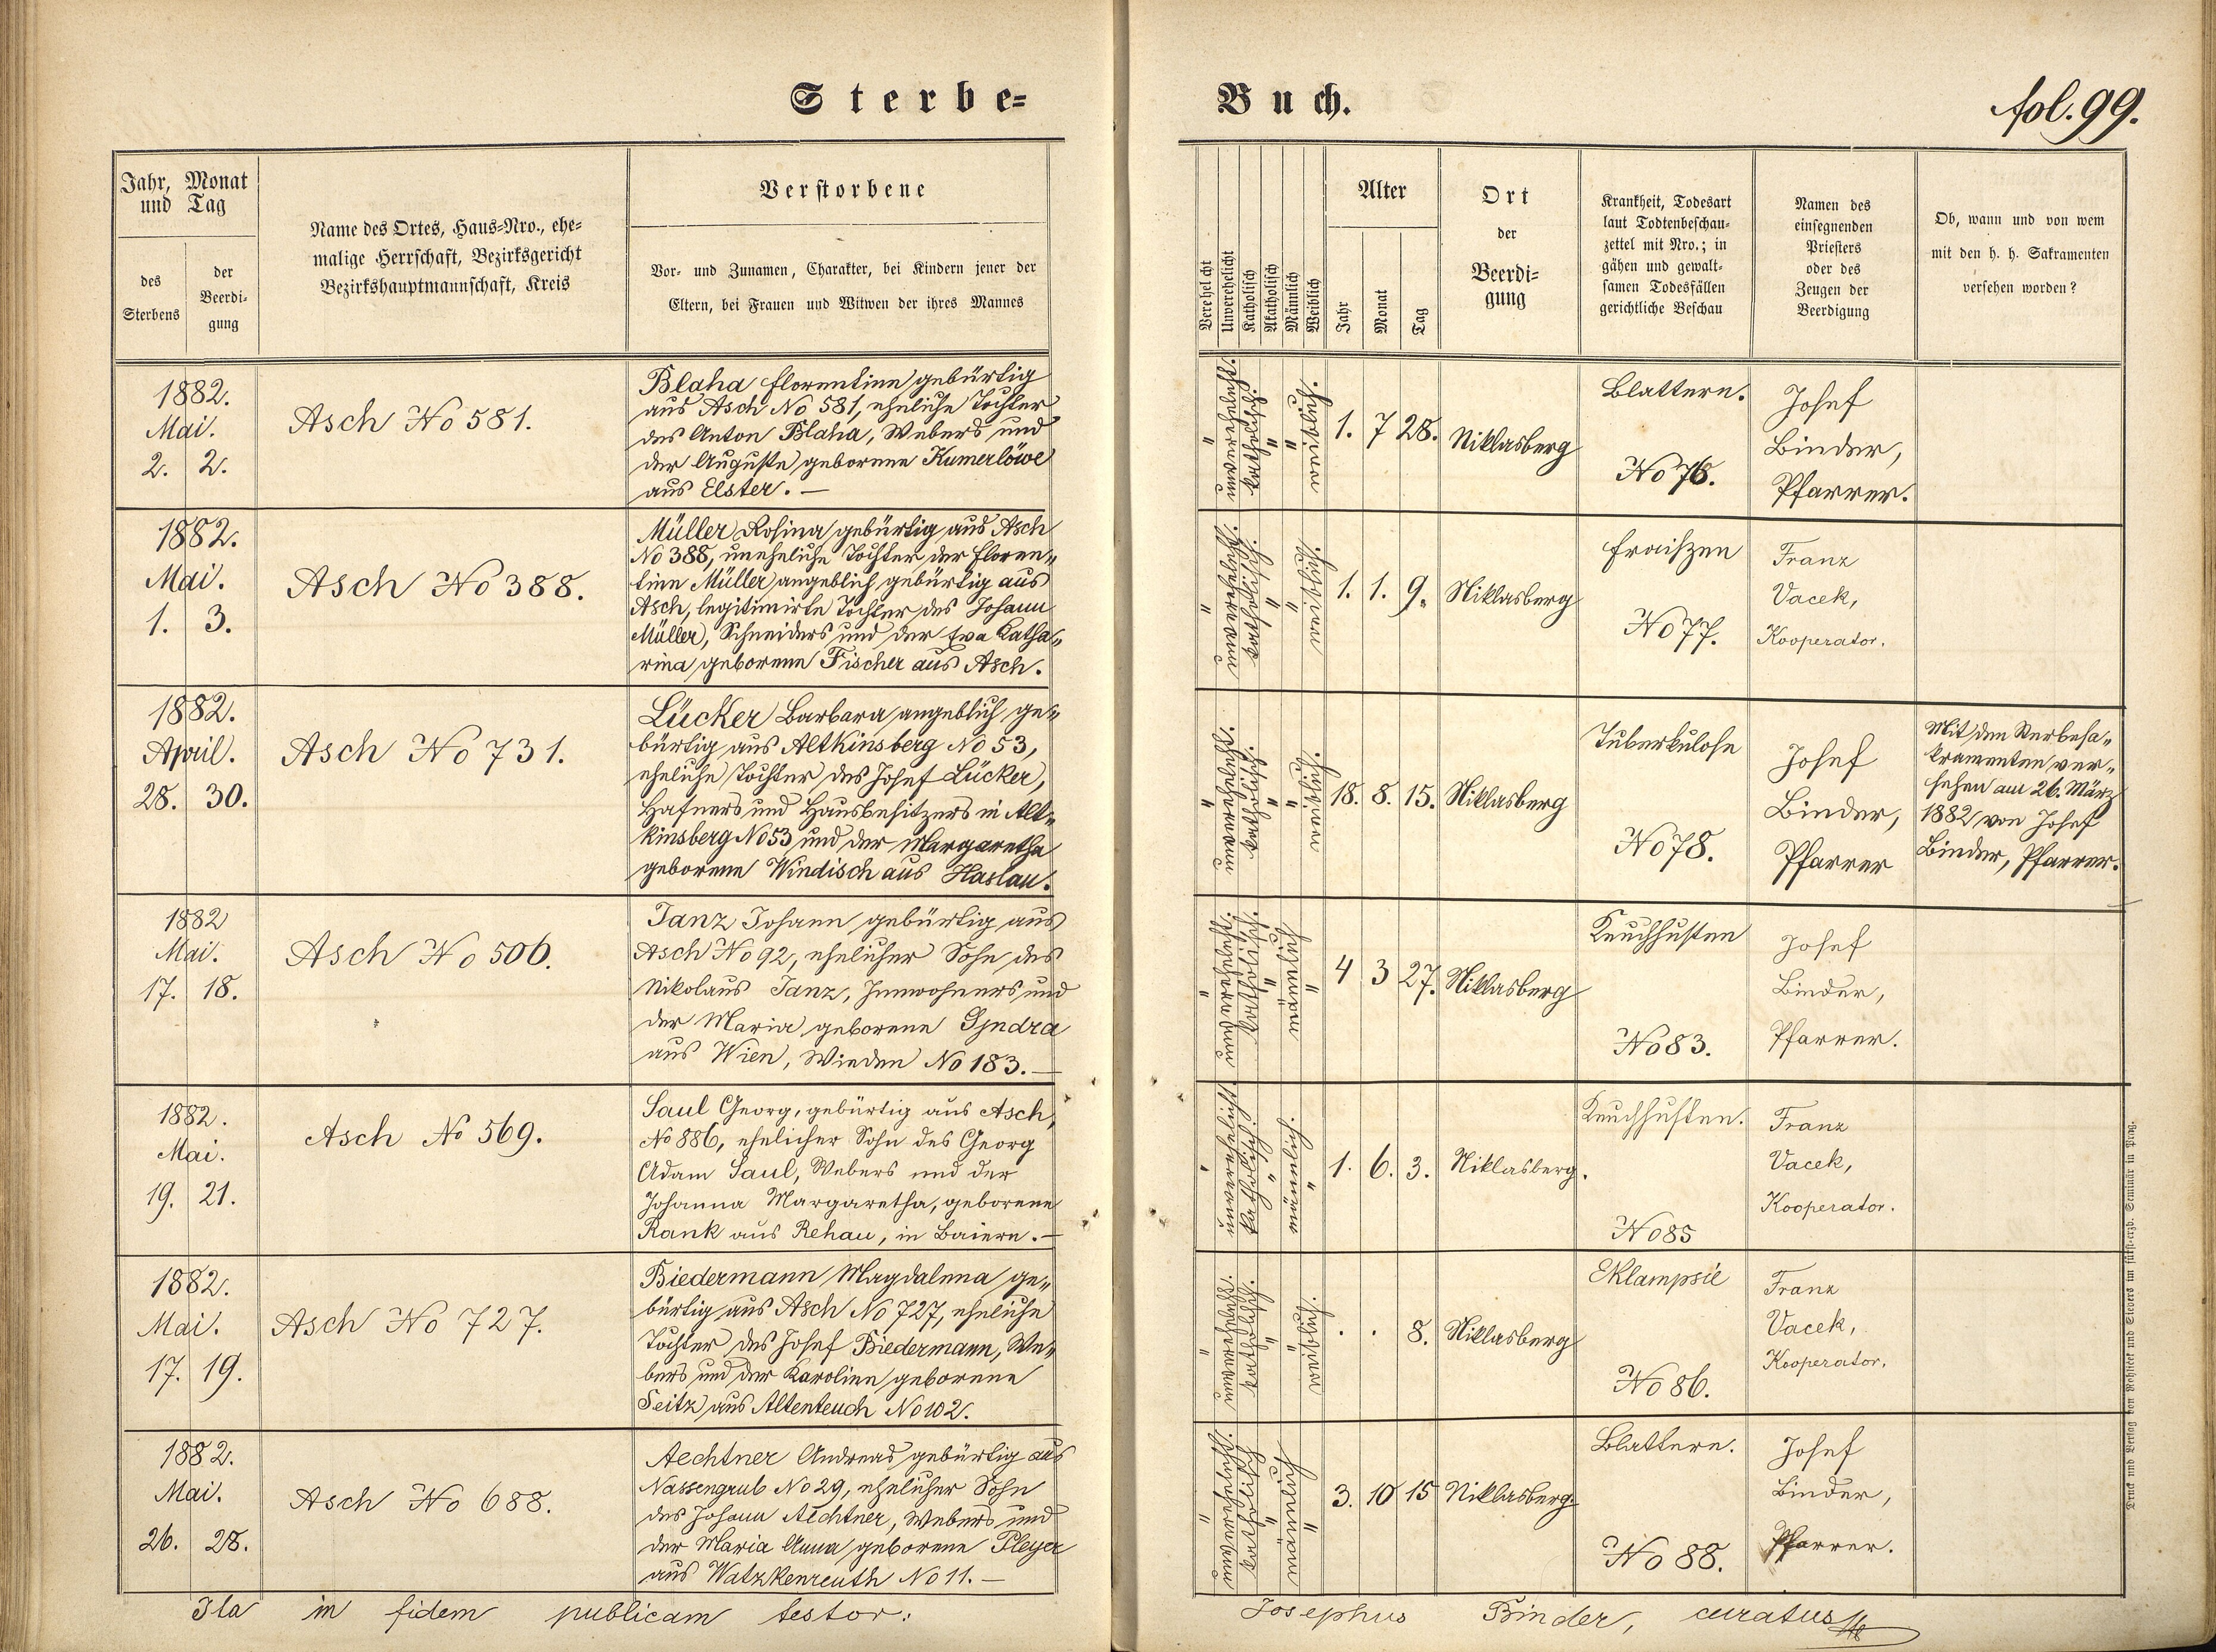 Sterbe-
Buch.
fol. 99.
Jahr, Monat
und Tag
des
Sterbens
der
Beerdi-
gung
Name des Ortes, Haus-Nro., ehe-
malige Herrschaft, Bezirksgericht
Bezirkshauptmannschaft, Kreis
Verstorbene
Vor- und Zunamen, Charakter, bei Kindern jener der
Eltern, bei Frauen und Witwen der ihres Mannes
Verehelicht
Unverehelicht
Katholisch
Akatholisch
Männlich
Weiblich
Alter
Jahr
Monat
Tag
Ort
der
Beerdi-
gung
Krankheit, Todesart
laut Todtenbeschau-
zettel mit Nro.; in
gähen und gewalt-
samen Todesfällen
gerichtliche Beschau
Namen des
einsegnenden
Priesters
oder des
Zeugen der
Beerdigung
Ob, wann und von wem
mit den h. h. Sakramenten
versehen worden?
1882.
Mai.
2. 2.
Asch No 581.
Blaha Florentine gebürtig
aus Asch No 581, eheliche Tochter
des Anton Blaha, Webers und
der Auguste geborene Kumerlöwe
aus Elster. —
"
unverehelicht.
katholisch.
"
"
weiblich.
1. 7 28.
Niklasberg
Blattern.
No 76.
Josef
Binder,
Pfarrer.
1882.
Mai.
1. 3.
Asch No 388.
Müller Rosina gebürtig aus Asch
No 388, uneheliche Tochter der Floren„
tine Müller angeblich gebürtig aus
Asch, legitimirte Tochter des Johann
Müller, Schneiders und der Eva Katha„
rina geborene Fischer aus Asch.
"
unverehelicht.
katholisch.
"
"
weiblich.
1. 1. 9.
Niklasberg
Fraiszen
No 77.
Franz
Vacek,
Kooperator.
1882.
April.
28. 30.
Asch No 731.
Lücker Barbara angeblich ge„
bürtig aus Altkinsberg No 53,
eheliche Tochter des Josef Lücker,
Hafners und Hausbesitzers in Alt„
kinsberg No 53 und der Margaretha
geborene Windisch aus Haslau.
"
unverehelicht.
katholisch.
"
"
weiblich.
18. 8. 15.
Niklasberg
Tuberkulose
No 78.
Josef
Binder,
Pfarrer
Mit den Sterbesa„
kramenten ver„
sehen am 26. März
1882 von Josef
Binder, Pfarrer.
1882
Mai.
17. 18.
Asch No 506.
Janz Johann gebürtig aus
Asch No 92, ehelicher Sohn des
Nikolaus Janz, Innwohners und
der Maria geborene Syndra
aus Wien, Wieden No 183. —
"
unverehelicht.
katholisch.
"
männlich
"
4 3 27.
Niklasberg
Keuchhusten
No 83.
Josef
Binder,
Pfarrer.
1882.
Mai.
19. 21.
Asch No 569.
Saul Georg, gebürtig aus Asch,
No 886, ehelicher Sohn des Georg
Adam Saul, Webers und der
Johanna Margaretha, geborene
Rank aus Rehau, in Baiern. —
"
unverehelicht.
katholisch.
"
männlich.
"
1. 6. 3.
Niklasberg.
Keuchhusten.
No 85
Franz
Vacek,
Kooperator.
1882.
Mai.
17. 19.
Asch No 727.
Biedermann Magdalena ge„
bürtig aus Asch No 727, eheliche
Tochter des Josef Biedermann, We„
bers und der Karoline geborene
Seitz aus Altenteuch No 102.
"
unverehelicht.
katholisch.
"
"
weiblich.
. . 8.
Niklasberg
Eklampsie
No 86.
Franz
Vacek,
Kooperator.
1882.
Mai.
26. 28.
Asch No 688.
Aechtner Andreas gebürtig aus
Nassengrub No 29, ehelicher Sohn
des Johann Aechtner, Webers und
der Maria Anna geborene Pleyer
aus Watzkenreuth No 11. —
"
unverehelicht.
katholisch
"
männlich
"
3. 10 15
Niklasberg.
Blattern.
No 88.
Josef
Binder,
Pfarrer.
Ita in fidem publicam testor:
Josephus Binder, curatus
Druck und Verlag von Rohliček und Sievers im fürst-erzb. Seminär in Prag.